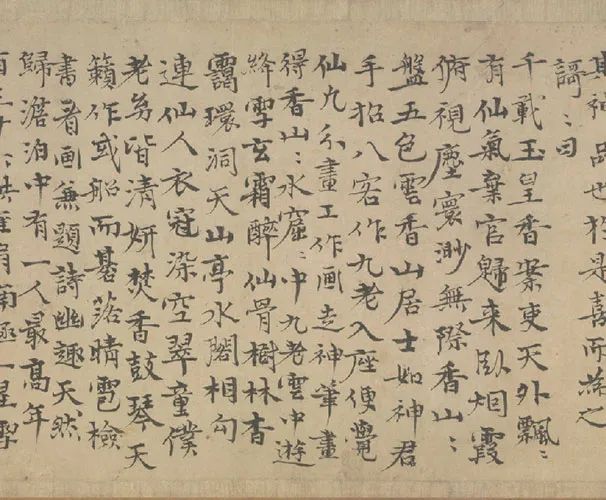 其神品也於是喜而為之
謌〻曰
千載玉皇香案吏天外飄〻
有仙氣棄官歸来卧烟霞
俯視塵寰渺無際香山〻
盤五色雲香山居士如神君
手招八客作九老入座便覺
仙凡分畫工作画走神筆畫
得香山〻水窟〻中九老雲中遊
絳雪玄霜醉仙骨樹林杳
靄環洞天山亭水閣相勾
連仙人衣冠染空翠童僕
老翁皆清妍焚香鼓琴天
籟作或船而棊落晴雹檢
書看画兼題詩幽趣天然
歸澹泊中有一人最髙年
肩南極一星